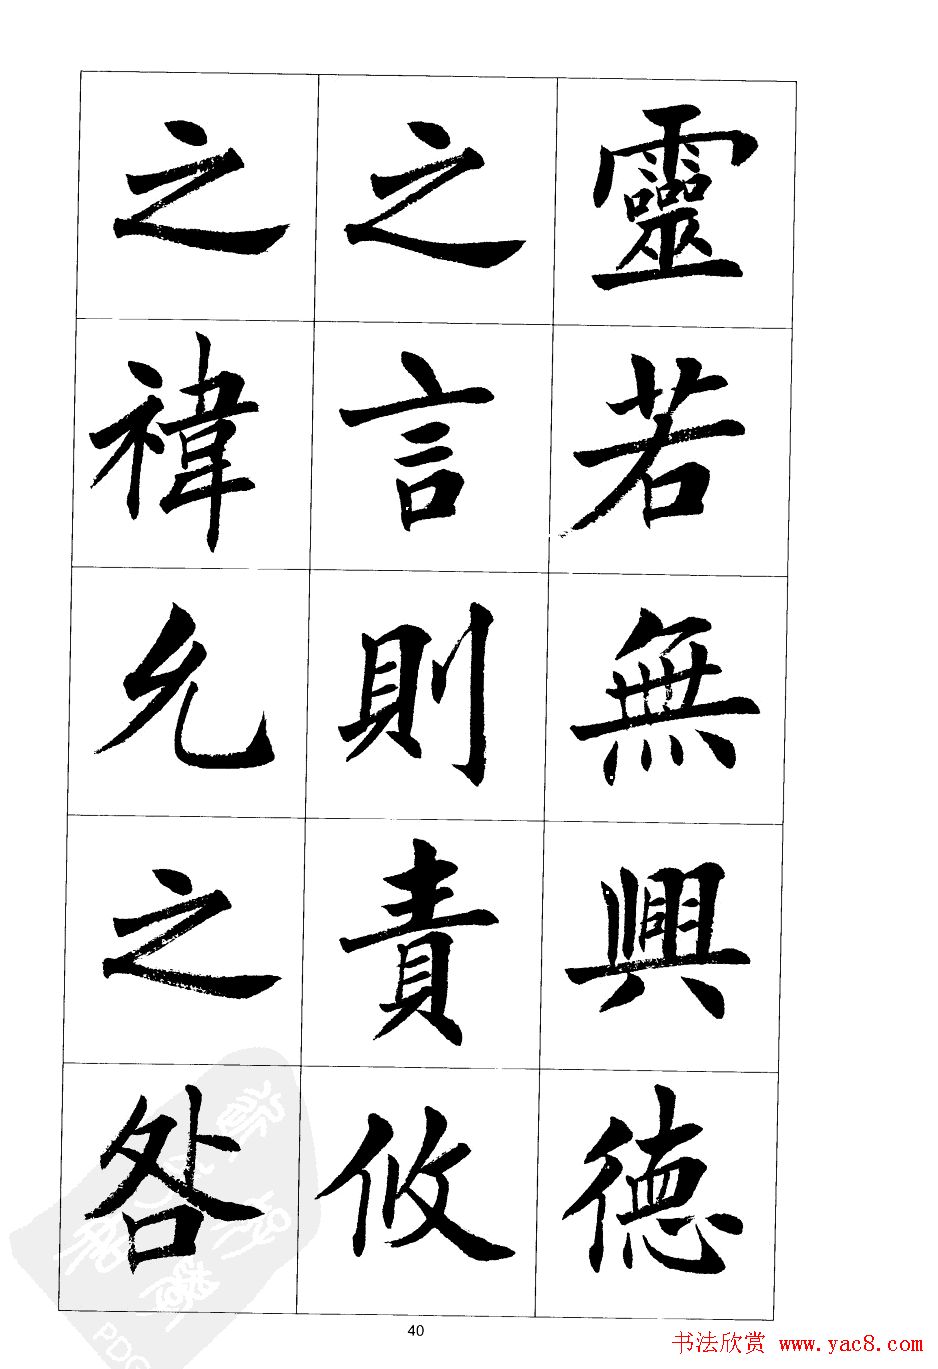 靈若無興德
之言則責攸
之禕允之咎
40
书法欣赏 www.yac8.com